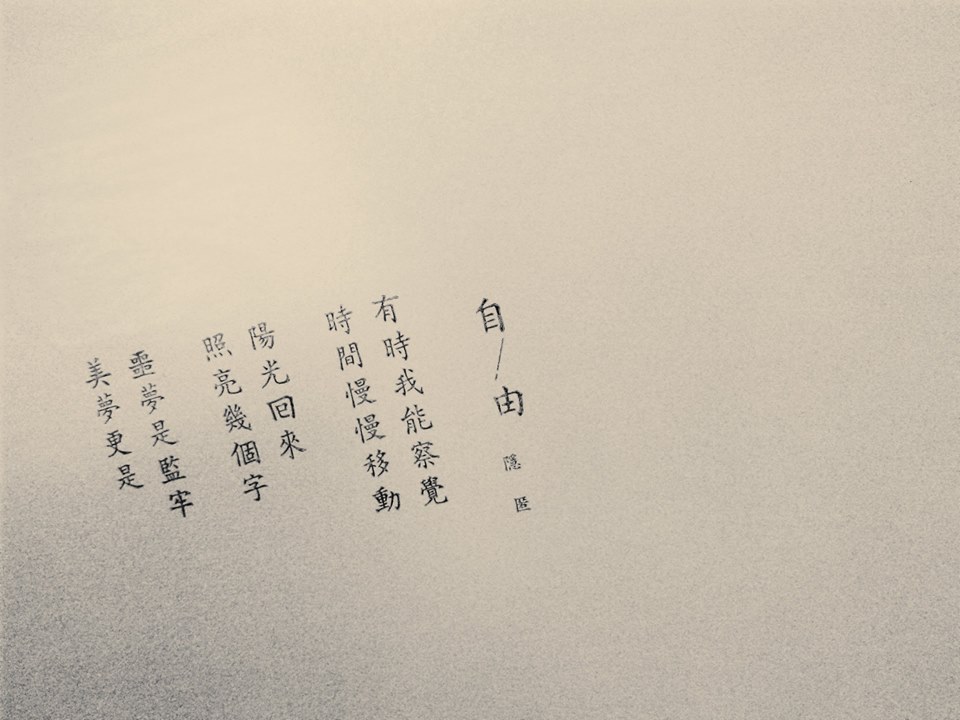 自/由 隱匿
有時我能察覺
時間慢慢移動
陽光回來
照亮幾個字
噩夢是監牢
美夢更是